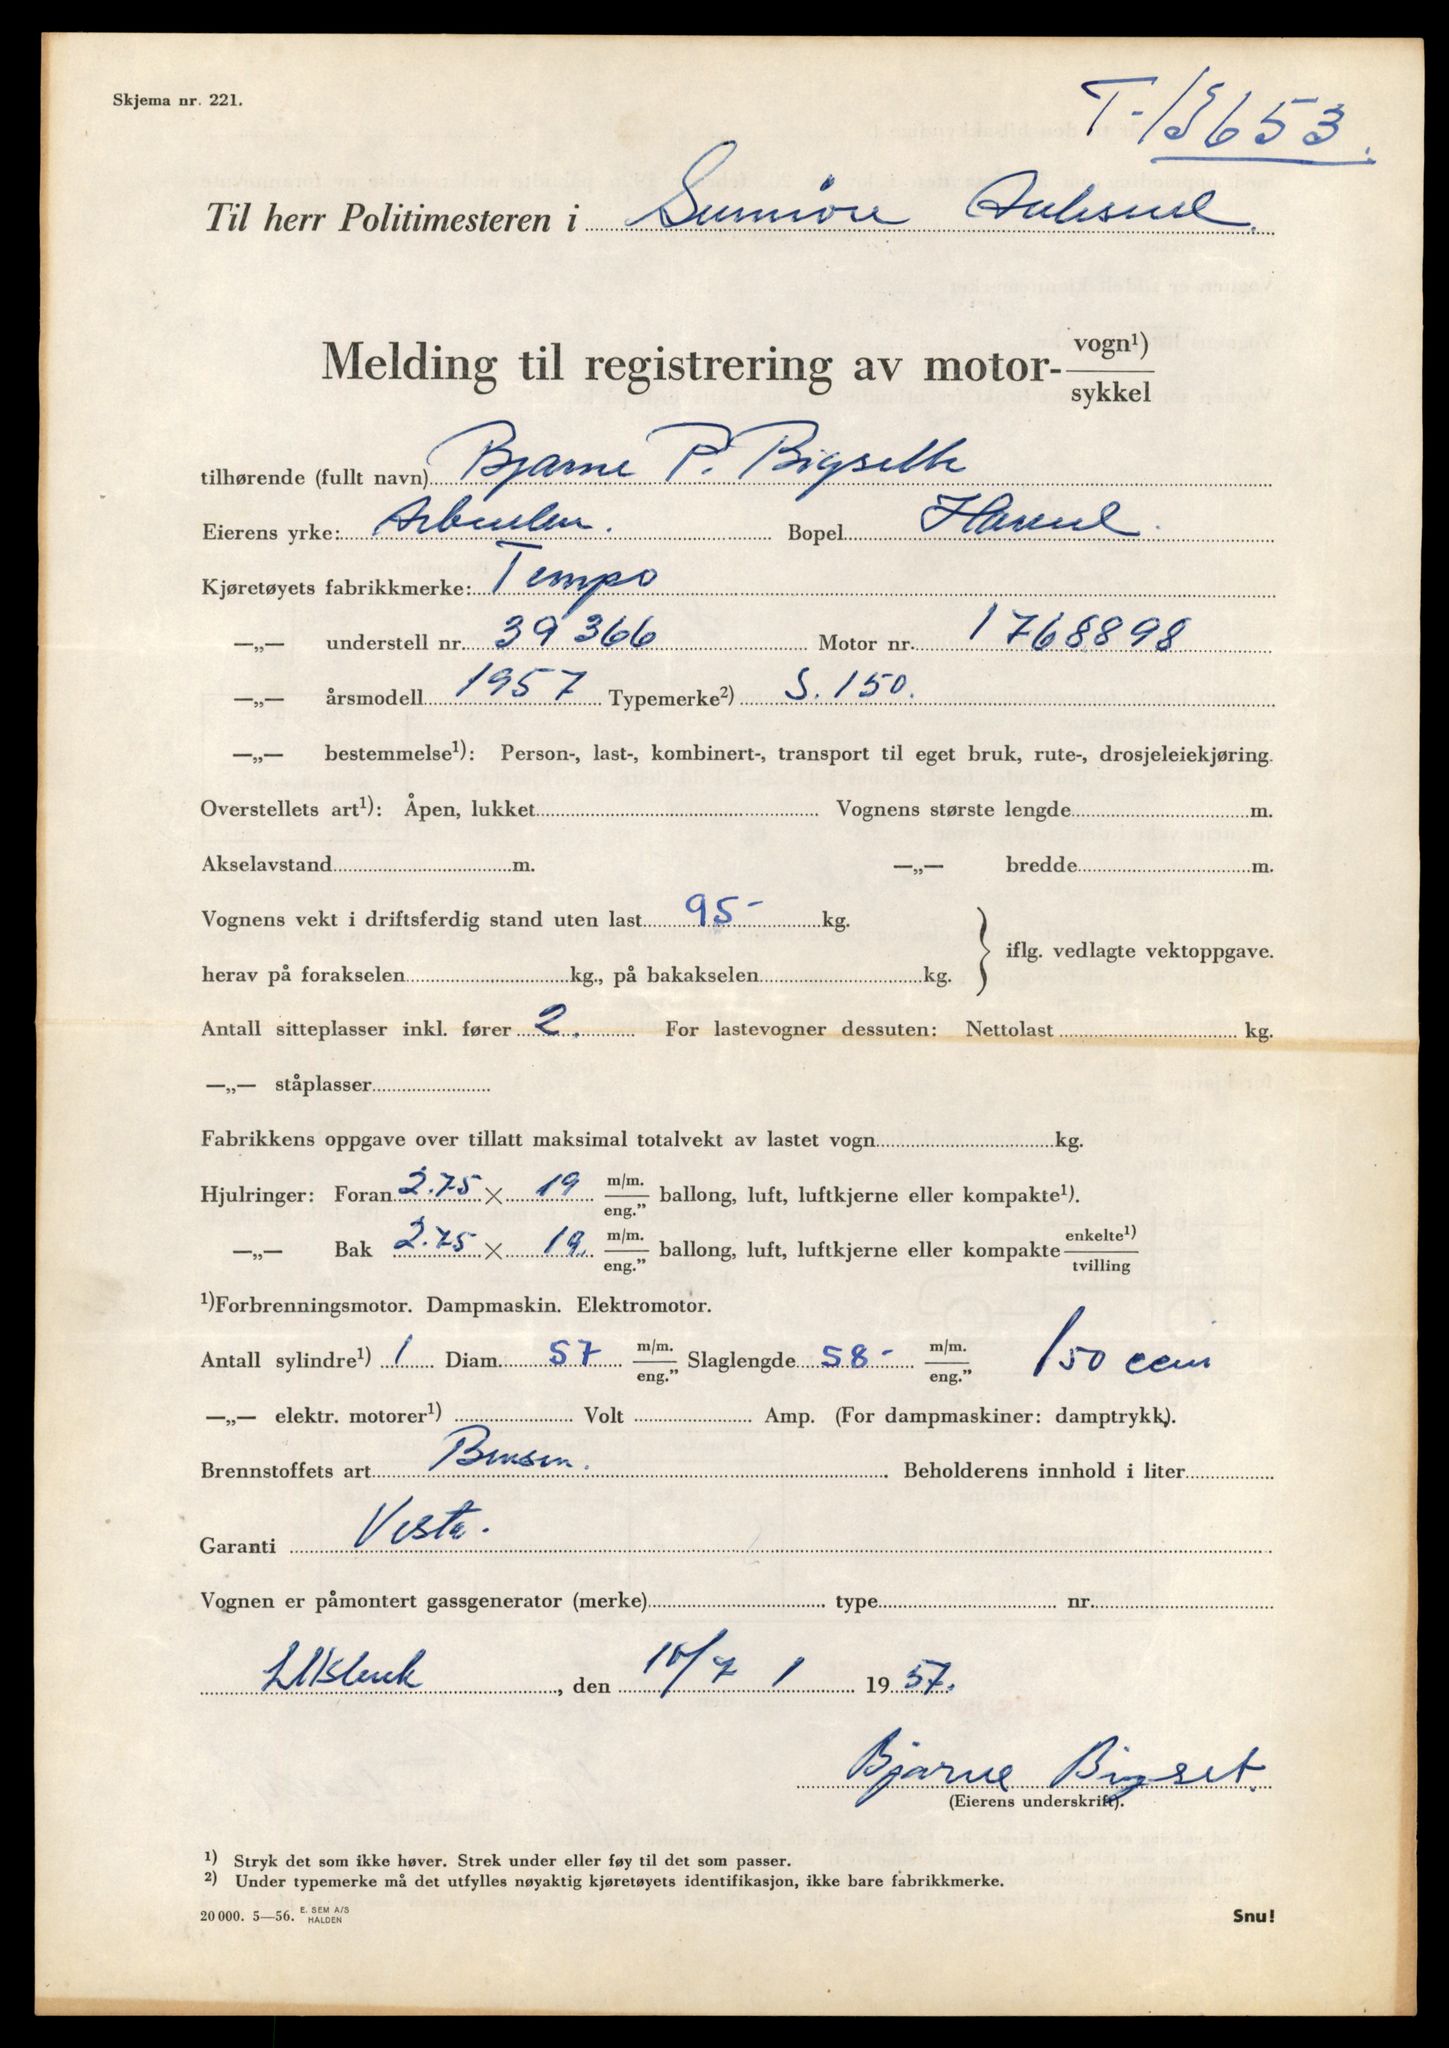 Skjema nr. 221.
T-13653.
Til herr Politimesteren i Sunmøre
Melding til registrering av motor- vogn¹) / sykkel
tilhørende (fullt navn) Bjarne P. Bigseth
Eierens yrke: Arbeider. Bopel Hareid.
Kjøretøyets fabrikkmerke: Tempo
—„— understell nr. 39366 Motor nr. 1768898
—„— årsmodell 1957 Typemerke²) S. 150.
—„— bestemmelse¹): Person-, last-, kombinert-, transport til eget bruk, rute-, drosjeleiekjøring.
Overstellets art¹): Åpen, lukket Vognens største lengde m.
Akselavstand m. —„— bredde m.
Vognens vekt i driftsferdig stand uten last 95- kg.
iflg. vedlagte vektoppgave.
herav på forakselen kg., på bakakselen kg.
Antall sitteplasser inkl. fører 2. For lastevogner dessuten: Nettolast kg.
—„— ståplasser
Fabrikkens oppgave over tillatt maksimal totalvekt av lastet vogn kg.
Hjulringer: Foran 2.75 × 19 m/m. / eng.” ballong, luft, luftkjerne eller kompakte¹).
—„— Bak 2.75 × 19. m/m. / eng.” ballong, luft, luftkjerne eller kompakte enkelte¹) / tvilling
¹)Forbrenningsmotor. Dampmaskin. Elektromotor.
Antall sylindre¹) 1 Diam. 57 m/m. / eng.” Slaglengde 58- m/m. / eng.” 150 ccm
—„— elektr. motorer¹) Volt Amp. (For dampmaskiner: damptrykk).
Brennstoffets art Bensin. Beholderens innhold i liter
Garanti Vesta.
Vognen er påmontert gassgenerator (merke) type nr.
, den 10/7 1957.
Bjarne Bigset.
(Eierens underskrift).
¹) Stryk det som ikke høver. Strek under eller føy til det som passer.
²) Under typemerke må det utfylles nøyaktig kjøretøyets identifikasjon, ikke bare fabrikkmerke.
20 000. 5—56. E. SEM A/S HALDEN
Snu!